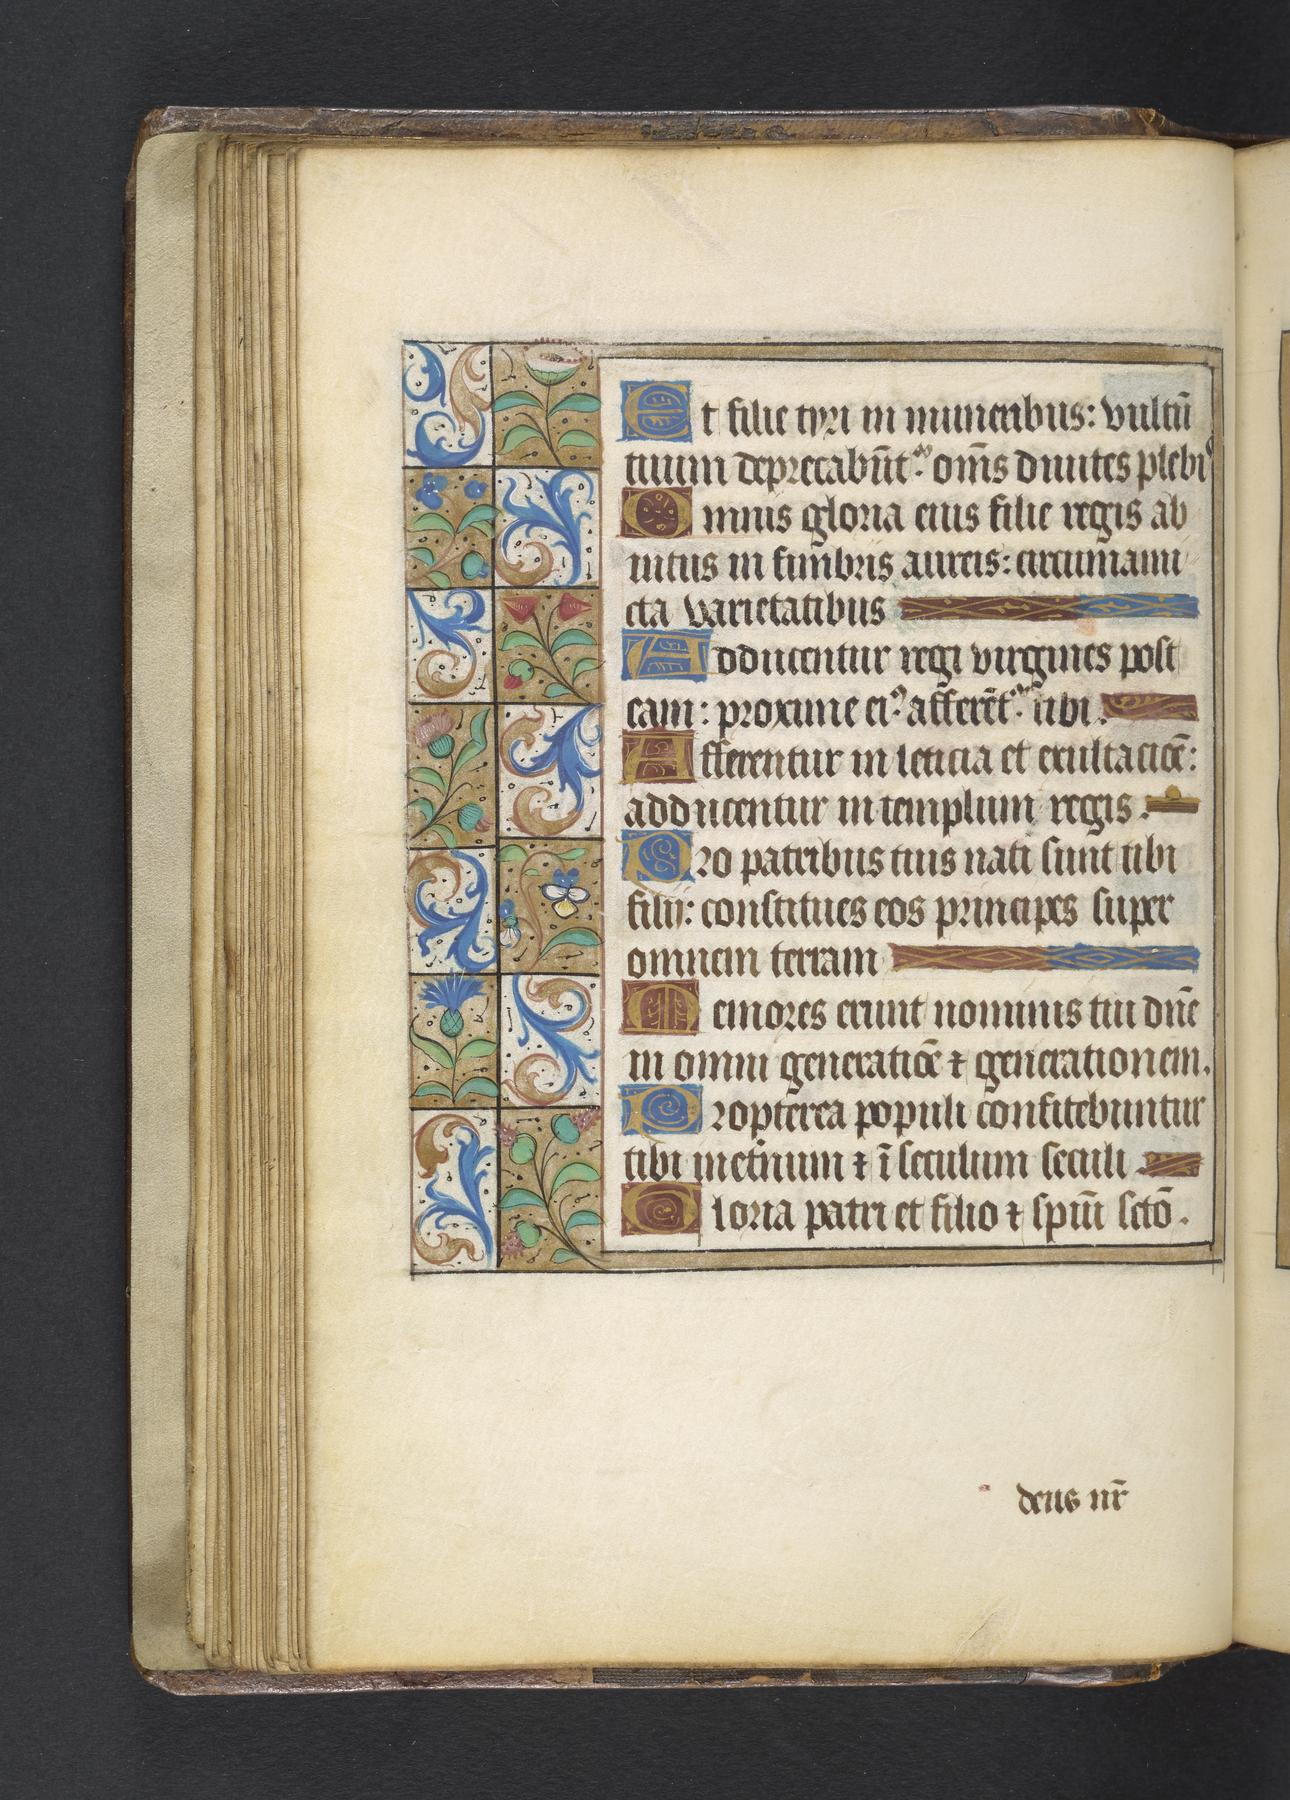 Et filie tyri in muneribus: vultū
tuum deprecabūt᷑: om̄s diuites plebi⁹
Omnis gloria eius filie regis ab
intus in fimbriis aureis: circumami
cta varietatibus
Adducentur regi virgines post
eam: proxime ei⁹ afferēt᷑ tibi.
Afferentur in leticia et exultaciōe:
adducentur in templum regis.
Pro patribus tuis nati sunt tibi
filij: constitues eos principes super
omnem terram
Memores erunt nominis tui dn̄e
in omni generatiōe ⁊ generationem.
Propterea populi confitebuntur
tibi ineternum ⁊ ī seculum seculi.
Gloria patri et filio ⁊ spiūi sctō.
deus nr̄